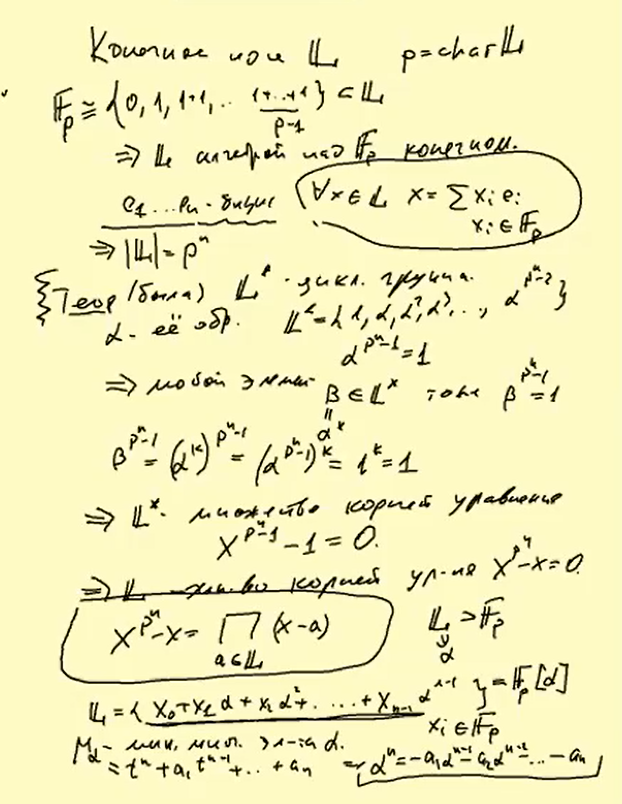 Конечное поле 𝕃 p=char𝕃
𝔽_p ≅ {0, 1, 1+1, .. 1+...+1} ⊂ 𝕃
p-1
⇒ 𝕃 алгеброй над 𝔽_p конечном.
e_1 ... e_n - базис ∀x∈𝕃 x=∑x_i e_i
x_i∈𝔽_p
⇒ |𝕃|=p^n
{Теор (была) 𝕃^* - цикл. группа.
α - её обр. 𝕃^*={1, α, α^2, α^3, .., α^{p^n-2}}
α^{p^n-1}=1
⇒ любой элемент β∈𝕃^x тоже β^{p^n-1}=1
=α^k
β^{p^n-1}=(α^k)^{p^n-1}=(α^{p^n-1})^k=1^k=1
⇒ 𝕃^*- множество корней уравнения
x^{p^n-1}-1=0.
⇒ 𝕃 - мн-во корней ур-ия x^{p^n}-x=0.
x^{p^n}-x=∏(x-a) 𝕃 ⊃ 𝔽_p
a∈𝕃 α
𝕃={x_0+x_1α+x_2α^2+...+x_{n-1}α^{n-1}}=𝔽_p[α]
x_i∈𝔽_p
M_α - мин. мног. эл-та α.
=t^n+a_1t^{n-1}+..+a_n ⇒ α^n=-a_1α^{n-1}-a_2α^{n-2}-...-a_n